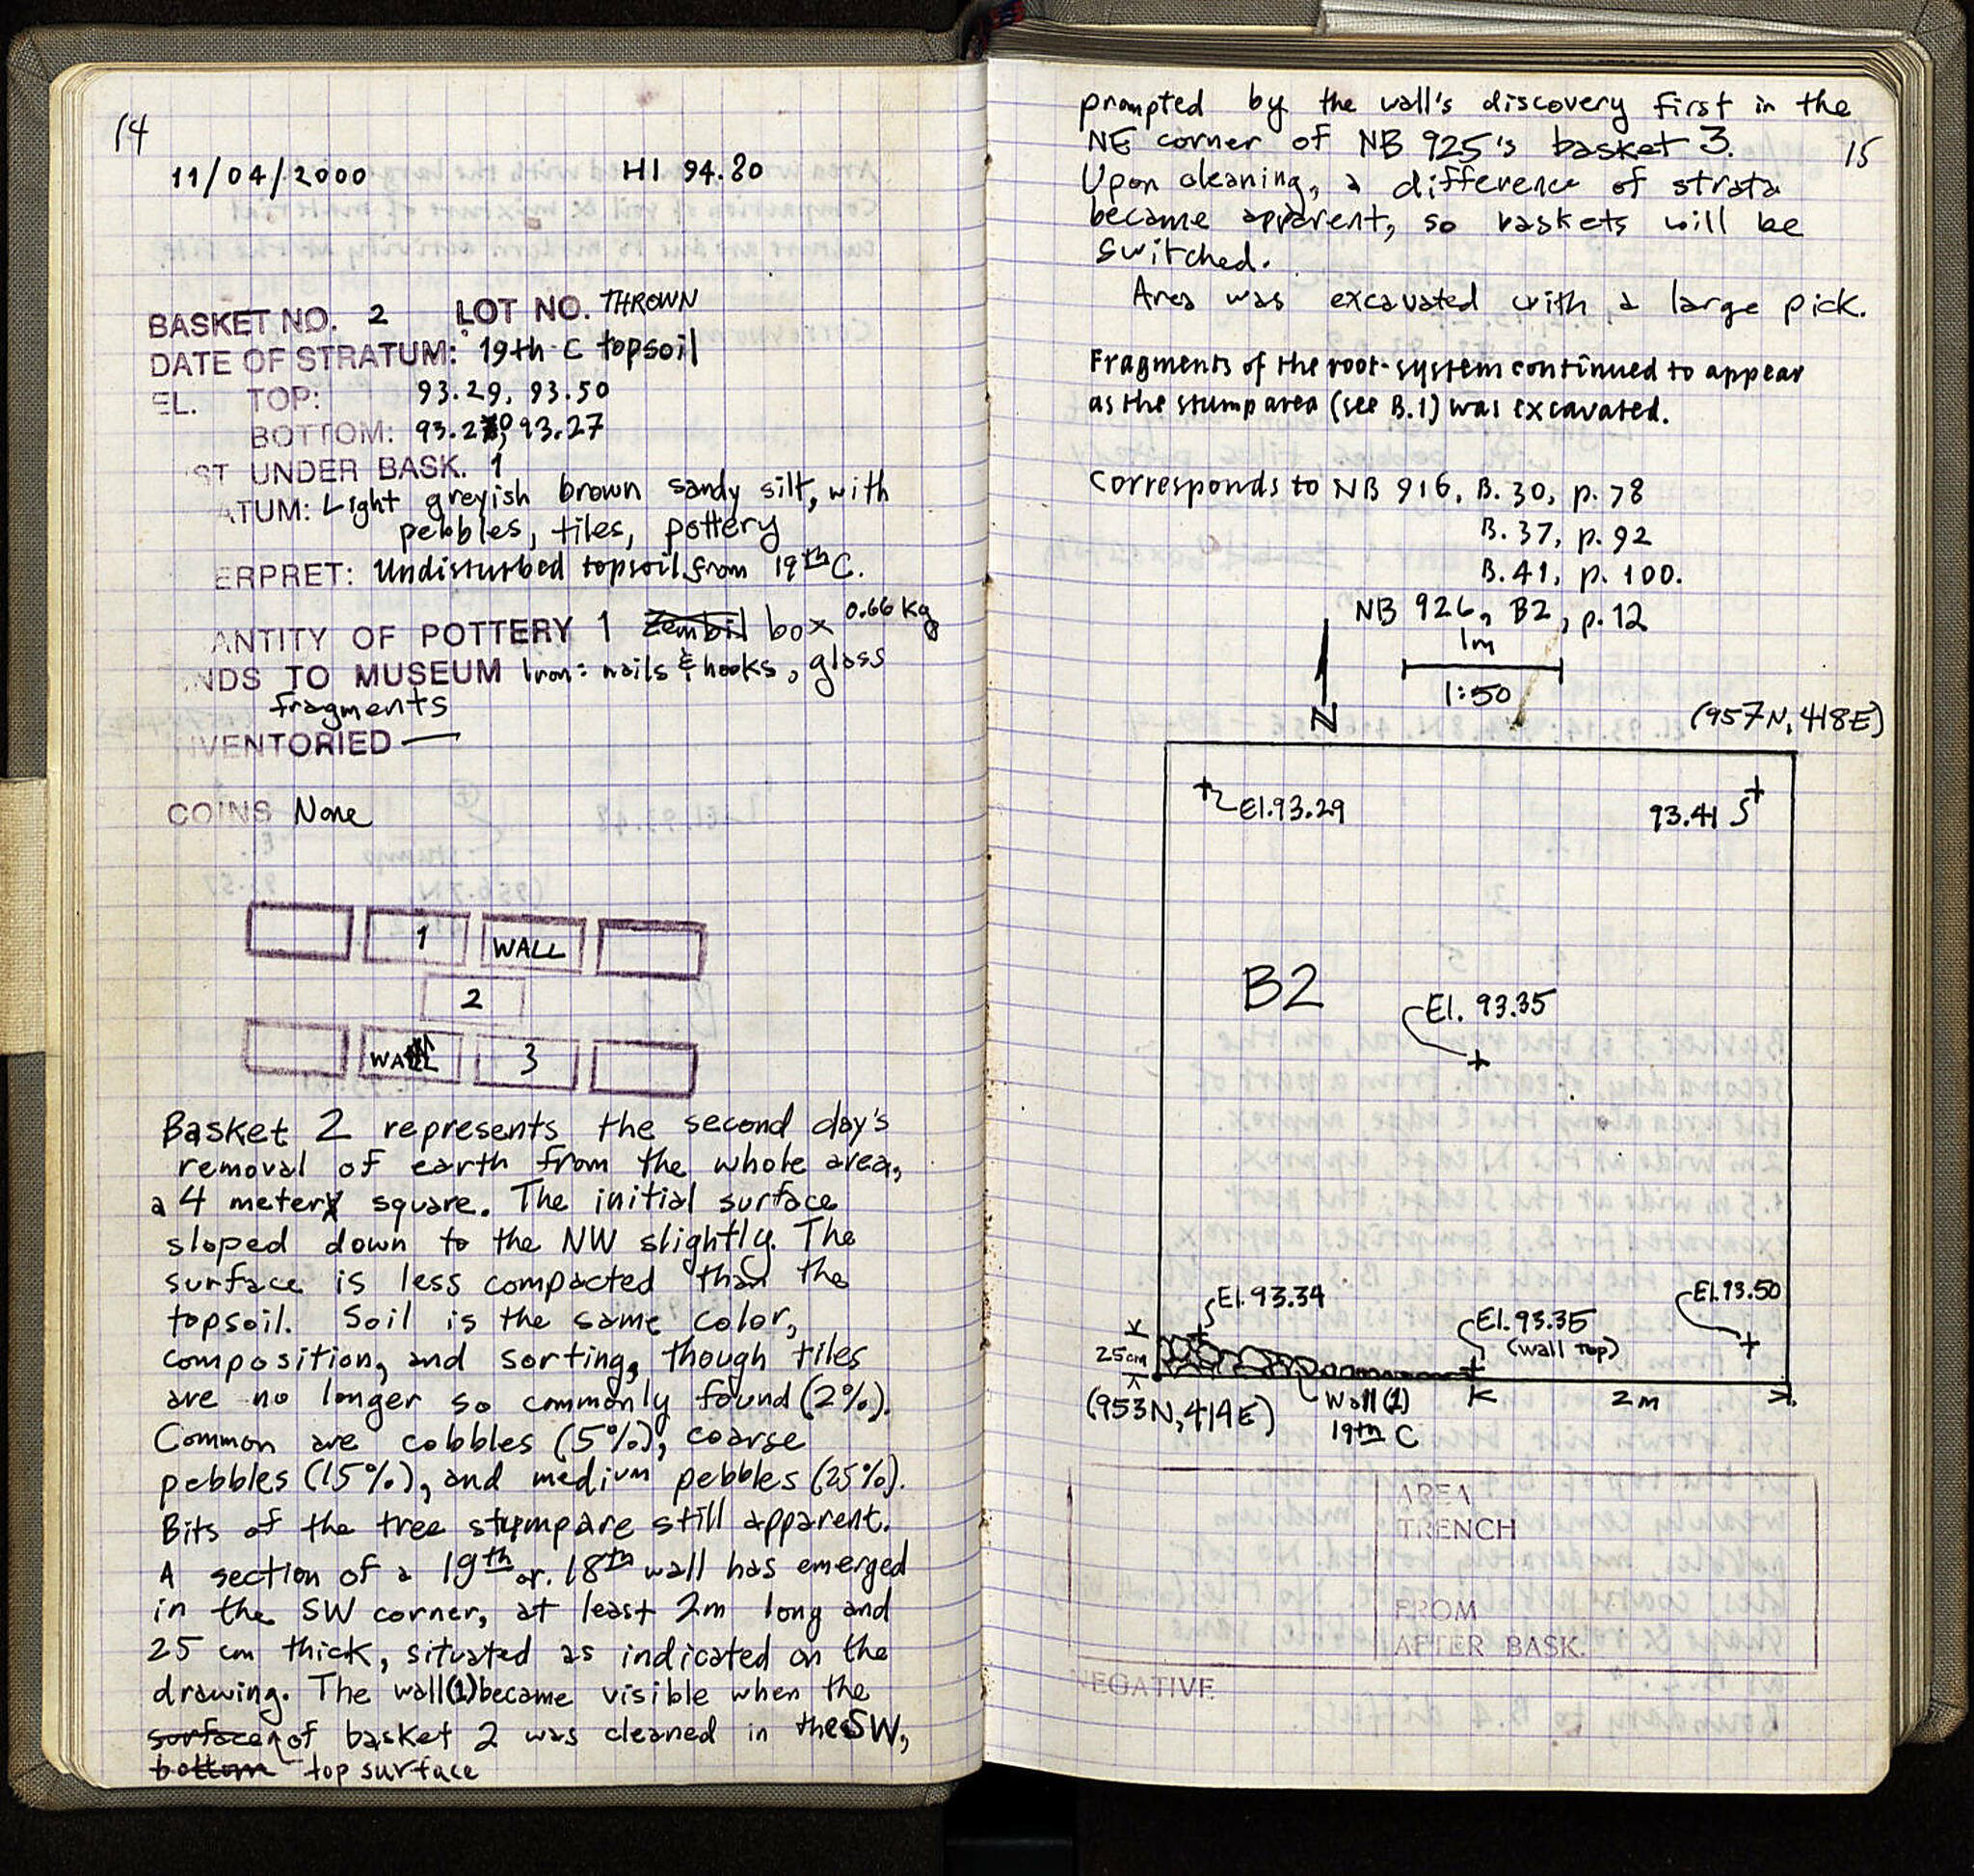 14
11/04/2000 HI 94.80
BASKET NO. 2 LOT NO. THROWN
DATE OF STRATUM: 19th C topsoil
EL. TOP: 93.29, 93.50
BOTTOM: 93.20, 93.27
ST UNDER BASK. 1
ATUM: Light greyish brown sandy silt, with
pebbles, tiles, pottery
ERPRET: Undisturbed topsoil from 19th C.
ANTITY OF POTTERY 1 Zembil box 0.66 kg
NDS TO MUSEUM Iron: nails & hooks, glass
fragments
NVENTORIED —
COINS None
1 WALL
2
WALL 3
Basket 2 represents the second day's
removal of earth from the whole area,
a 4 meter square. The initial surface
sloped down to the NW slightly. The
surface is less compacted than the
topsoil. Soil is the same color,
composition, and sorting, though tiles
are no longer so commonly found (2%).
Common are cobbles (5%), coarse
pebbles (15%), and medium pebbles (25%).
Bits of the tree stump are still apparent.
A section of a 19th or 18th wall has emerged
in the SW corner, at least 2m long and
25 cm thick, situated as indicated on the
drawing. The wall(1) became visible when the
surface of basket 2 was cleaned in the SW,
bottom top surface
prompted by the wall's discovery first in the
NE corner of NB 925's basket 3.
15
Upon cleaning, a difference of strata
became apparent, so baskets will be
switched.
Area was excavated with a large pick.
Fragments of the root-system continued to appear
as the stump area (see B.1) was excavated.
Corresponds to NB 916, B. 30, p. 78
B. 37, p. 92
B. 41, p. 100.
NB 926, B2, p. 12
1m
1:50
N
(957N, 418E)
El. 93.29
93.41
B2
El. 93.35
El. 93.34
El. 93.50
El. 93.35
(wall top)
25cm
(953N, 414E)
Wall (1)
19th C
2m
AREA
TRENCH
FROM
AFTER BASK.
NEGATIVE